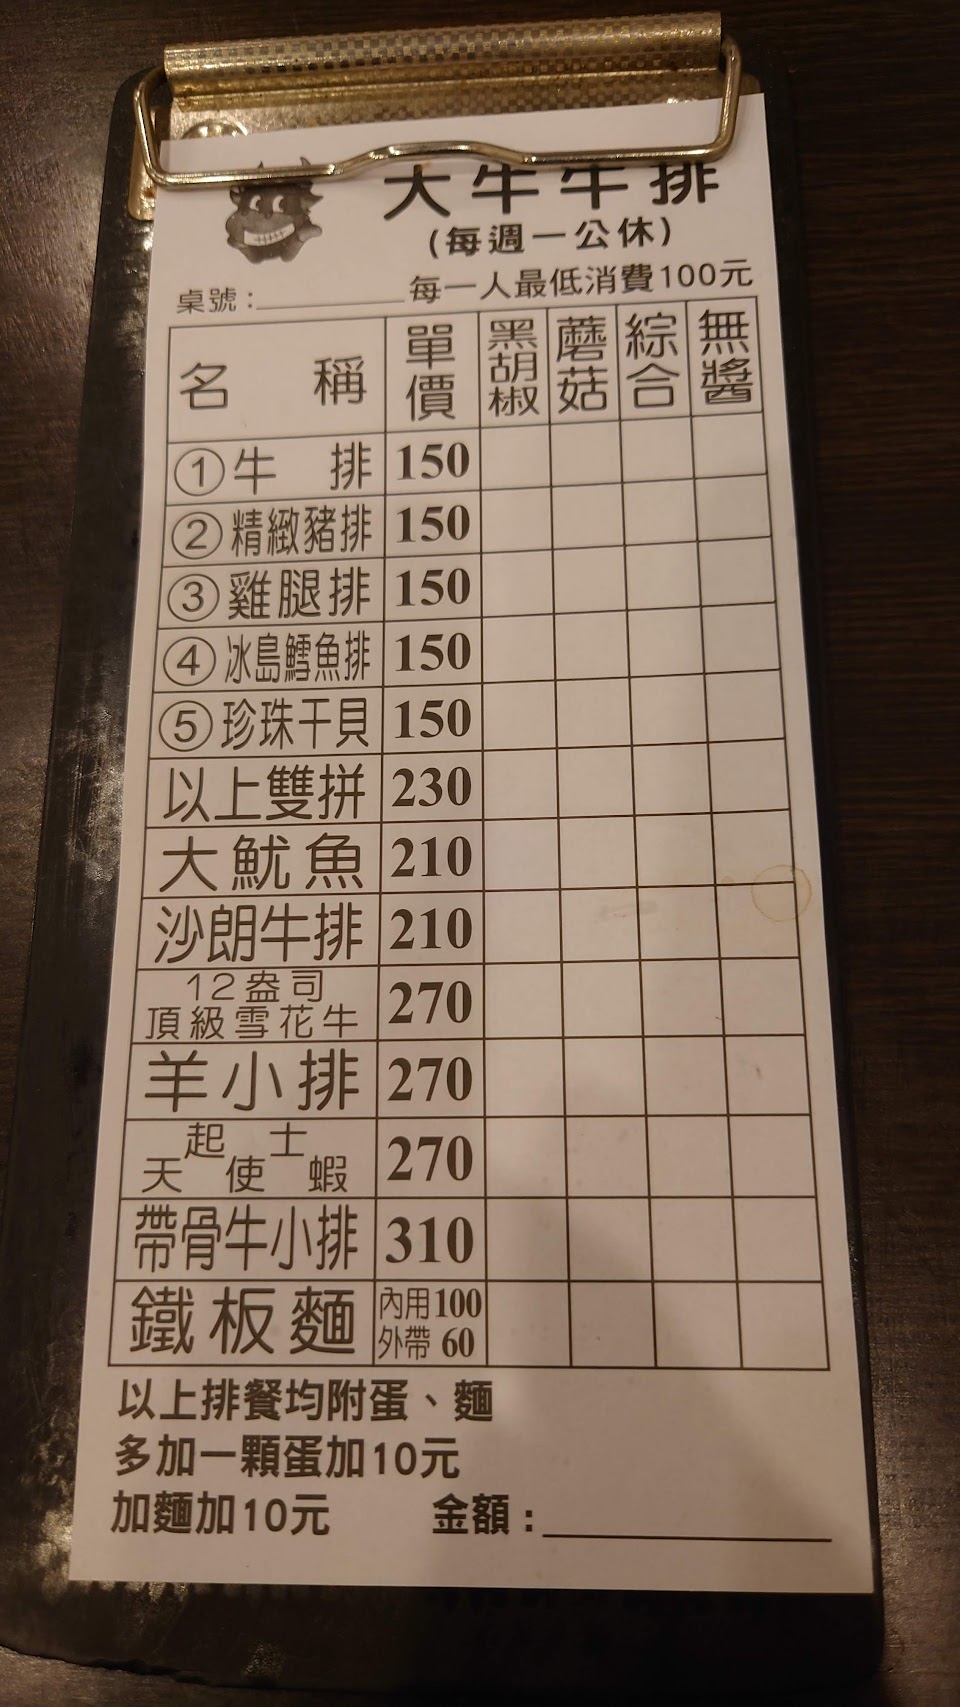 大牛牛排
(每週一公休)
桌號: 每一人最低消費100元
名稱 單價 黑胡椒 蘑菇 綜合 無醬
①牛排 150
②精緻豬排 150
③雞腿排 150
④冰島鱈魚排 150
⑤珍珠干貝 150
以上雙拼 230
大魷魚 210
沙朗牛排 210
12盎司
頂級雪花牛 270
羊小排 270
起士
天使蝦 270
帶骨牛小排 310
鐵板麵 內用100
外帶 60
以上排餐均附蛋、麵
多加一顆蛋加10元
加麵加10元 金額: